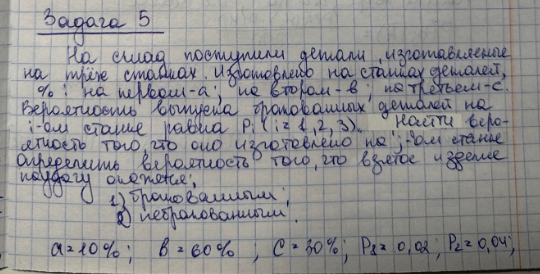 Задача 5
На склад поступили детали, изготовленные
на трёх станках. Изготовлено на станках деталей,
%: на первом-a; на втором-в; на третьем-с.
Вероятность выпуска бракованных деталей на
i-ом станке равна Pi (i=1,2,3). Найти веро-
ятность того, что оно изготовлено на i-ом станке
определить вероятность того, что взятое изделие
наудачу окажется:
1) бракованным;
2) небракованным.
a=10%; в=60%; C=30%; P3=0,02; P2=0,04;